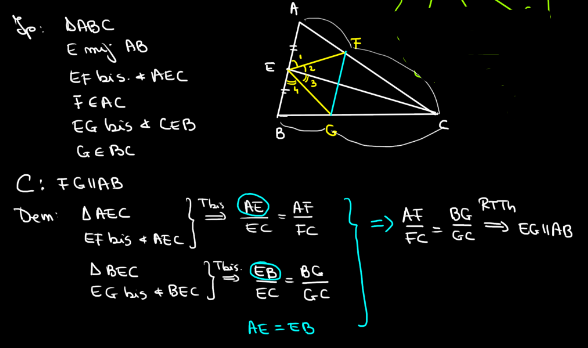 Ip: ΔABC
E mij AB
EF bis. ∢ AEC
F∈AC
EG bis ∢ CEB
G∈BC
A
F
E
1
2
3
4
B
G
C
C: FG||AB
Dem: ΔAEC
EF bis ∢ AEC } Tbis ⇒ AE/EC = AF/FC
ΔBEC
EG bis ∢ BEC } Tbis. ⇒ EB/EC = BG/GC
AE = EB
} ⇒ AF/FC = BG/GC RTTh ⇒ EG||AB